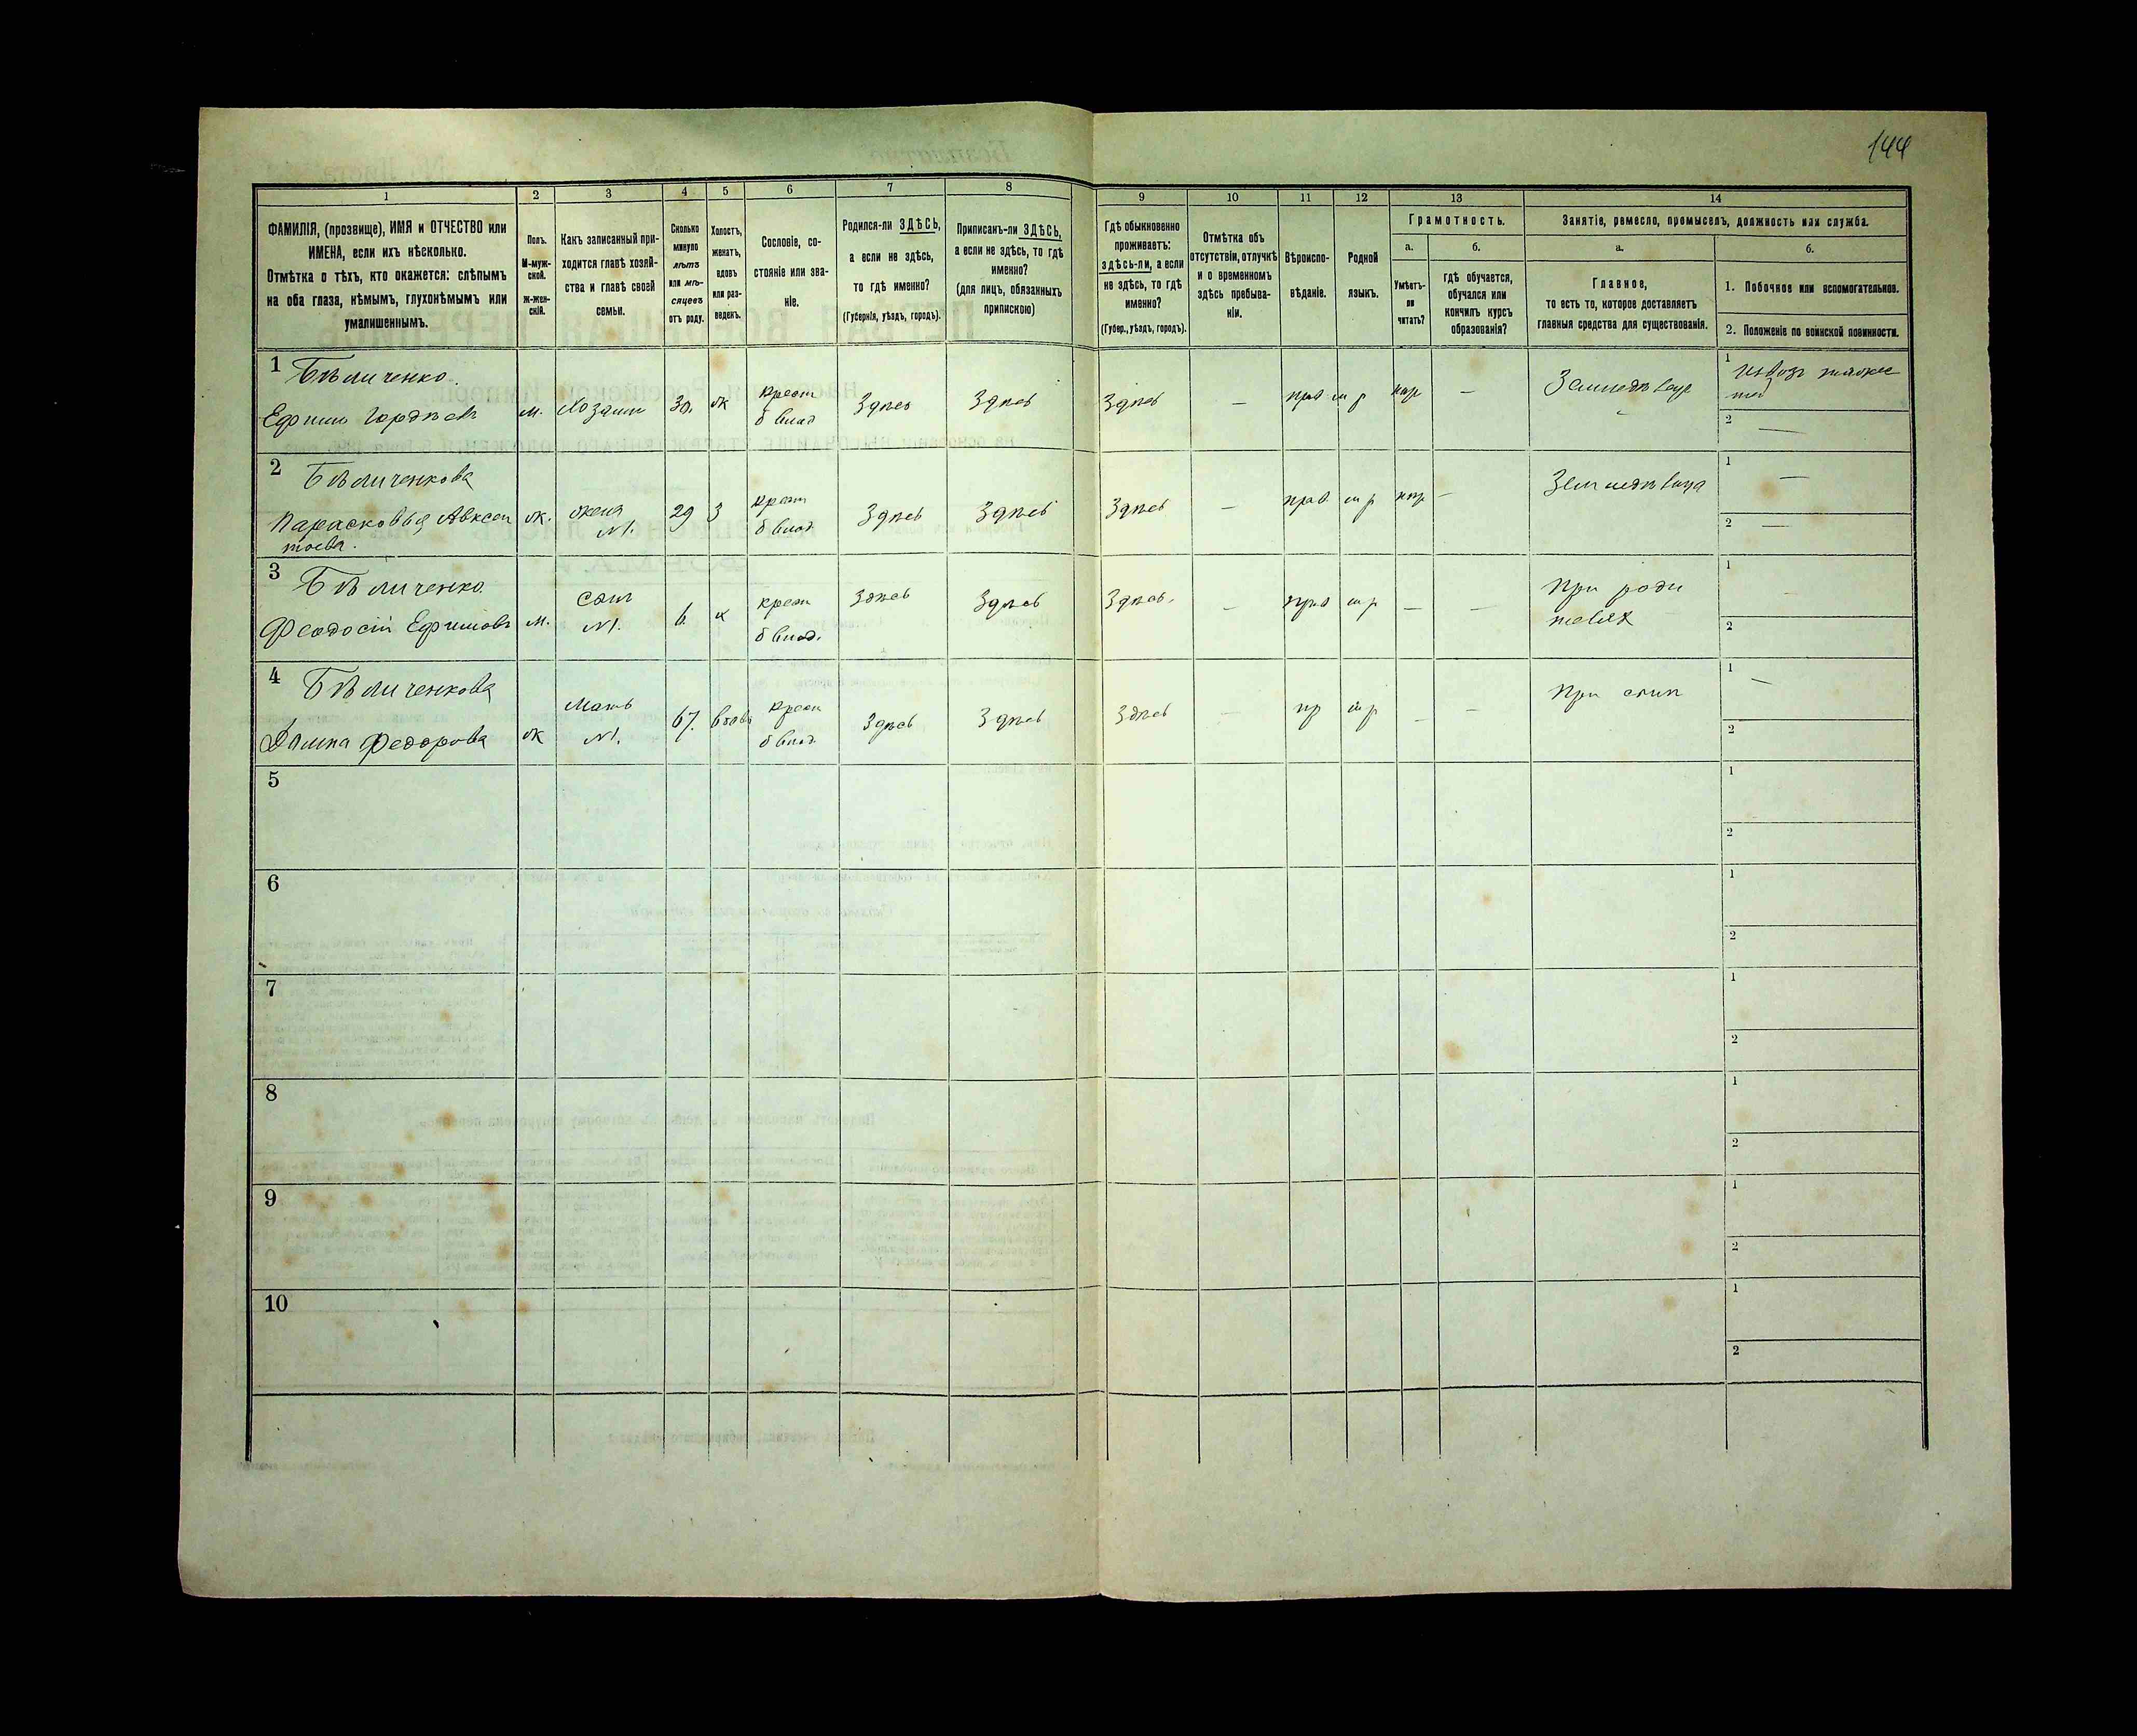 144
1
2
3
4
5
6
7
8
9
10
11
12
13
14
ФАМИЛІЯ, (прозвище), ИМЯ и ОТЧЕСТВО или
ИМЕНА, если ихъ нѣсколько.
Отмѣтка о тѣхъ, кто окажется: слѣпымъ
на оба глаза, нѣмымъ, глухонѣмымъ или
умалишеннымъ.
Полъ.
М-муж-
ской.
ж-жен-
скій.
Какъ записанный при-
ходится главѣ хозяй-
ства и главѣ своей
семьи.
Сколько
минуло
лѣтъ
или мѣ-
сяцевъ
отъ роду.
Холостъ,
женатъ,
вдовъ
или раз-
веденъ.
Сословіе, со-
стояніе или зва-
ніе.
Родился-ли ЗДѢСЬ,
а если не здѣсь,
то гдѣ именно?
(Губернія, уѣздъ, городъ).
Приписанъ-ли ЗДѢСЬ,
а если не здѣсь, то гдѣ
именно?
(для лицъ, обязанныхъ
припискою)
Гдѣ обыкновенно
проживаетъ:
здѣсь-ли, а если
не здѣсь, то гдѣ
именно?
(Губер., уѣздъ, городъ).
Отмѣтка объ
отсутствіи, отлучкѣ
и о временномъ
здѣсь пребыва-
ніи.
Вѣроиспо-
вѣданіе.
Родной
языкъ.
Грамотность.
а.
Умѣетъ-
ли
читать?
б.
гдѣ обучается,
обучался или
кончилъ курсъ
образованія?
Занятіе, ремесло, промыселъ, должность или служба.
а.
Главное,
то есть то, которое доставляетъ
главныя средства для существованія.
б.
1. Побочное или вспомогательное.
2. Положеніе по воинской повинности.
1 Бѣличенко.
Ефимъ Гордѣевъ м. Хозаинъ 30. ж крест
б влад Здѣсь Здѣсь Здѣсь — прав м р нгр — 1
2 —
2 Бѣличенкова
Парасковья Авксен
тьева. ж. жена
N1. 29 З крест
б влад. Здѣсь Здѣсь Здѣсь — прав. м р нгр — 1 —
2 —
3 Бѣличенко.
Феодосій Ефимовъ м. сынъ
N1. 6. х крест
б влад. Здѣсь Здѣсь Здѣсь. — прав м р — — При роди
теляхъ 1
2
4 Бѣличенкова
Федорова ж Мать
N1. 67. вдова крест
б влад. Здѣсь Здѣсь Здѣсь — пр м р — — При сынѣ 1 —
2
5 1
2
6 1
2
7 1
2
8 1
2
9 1
2
10 1
2